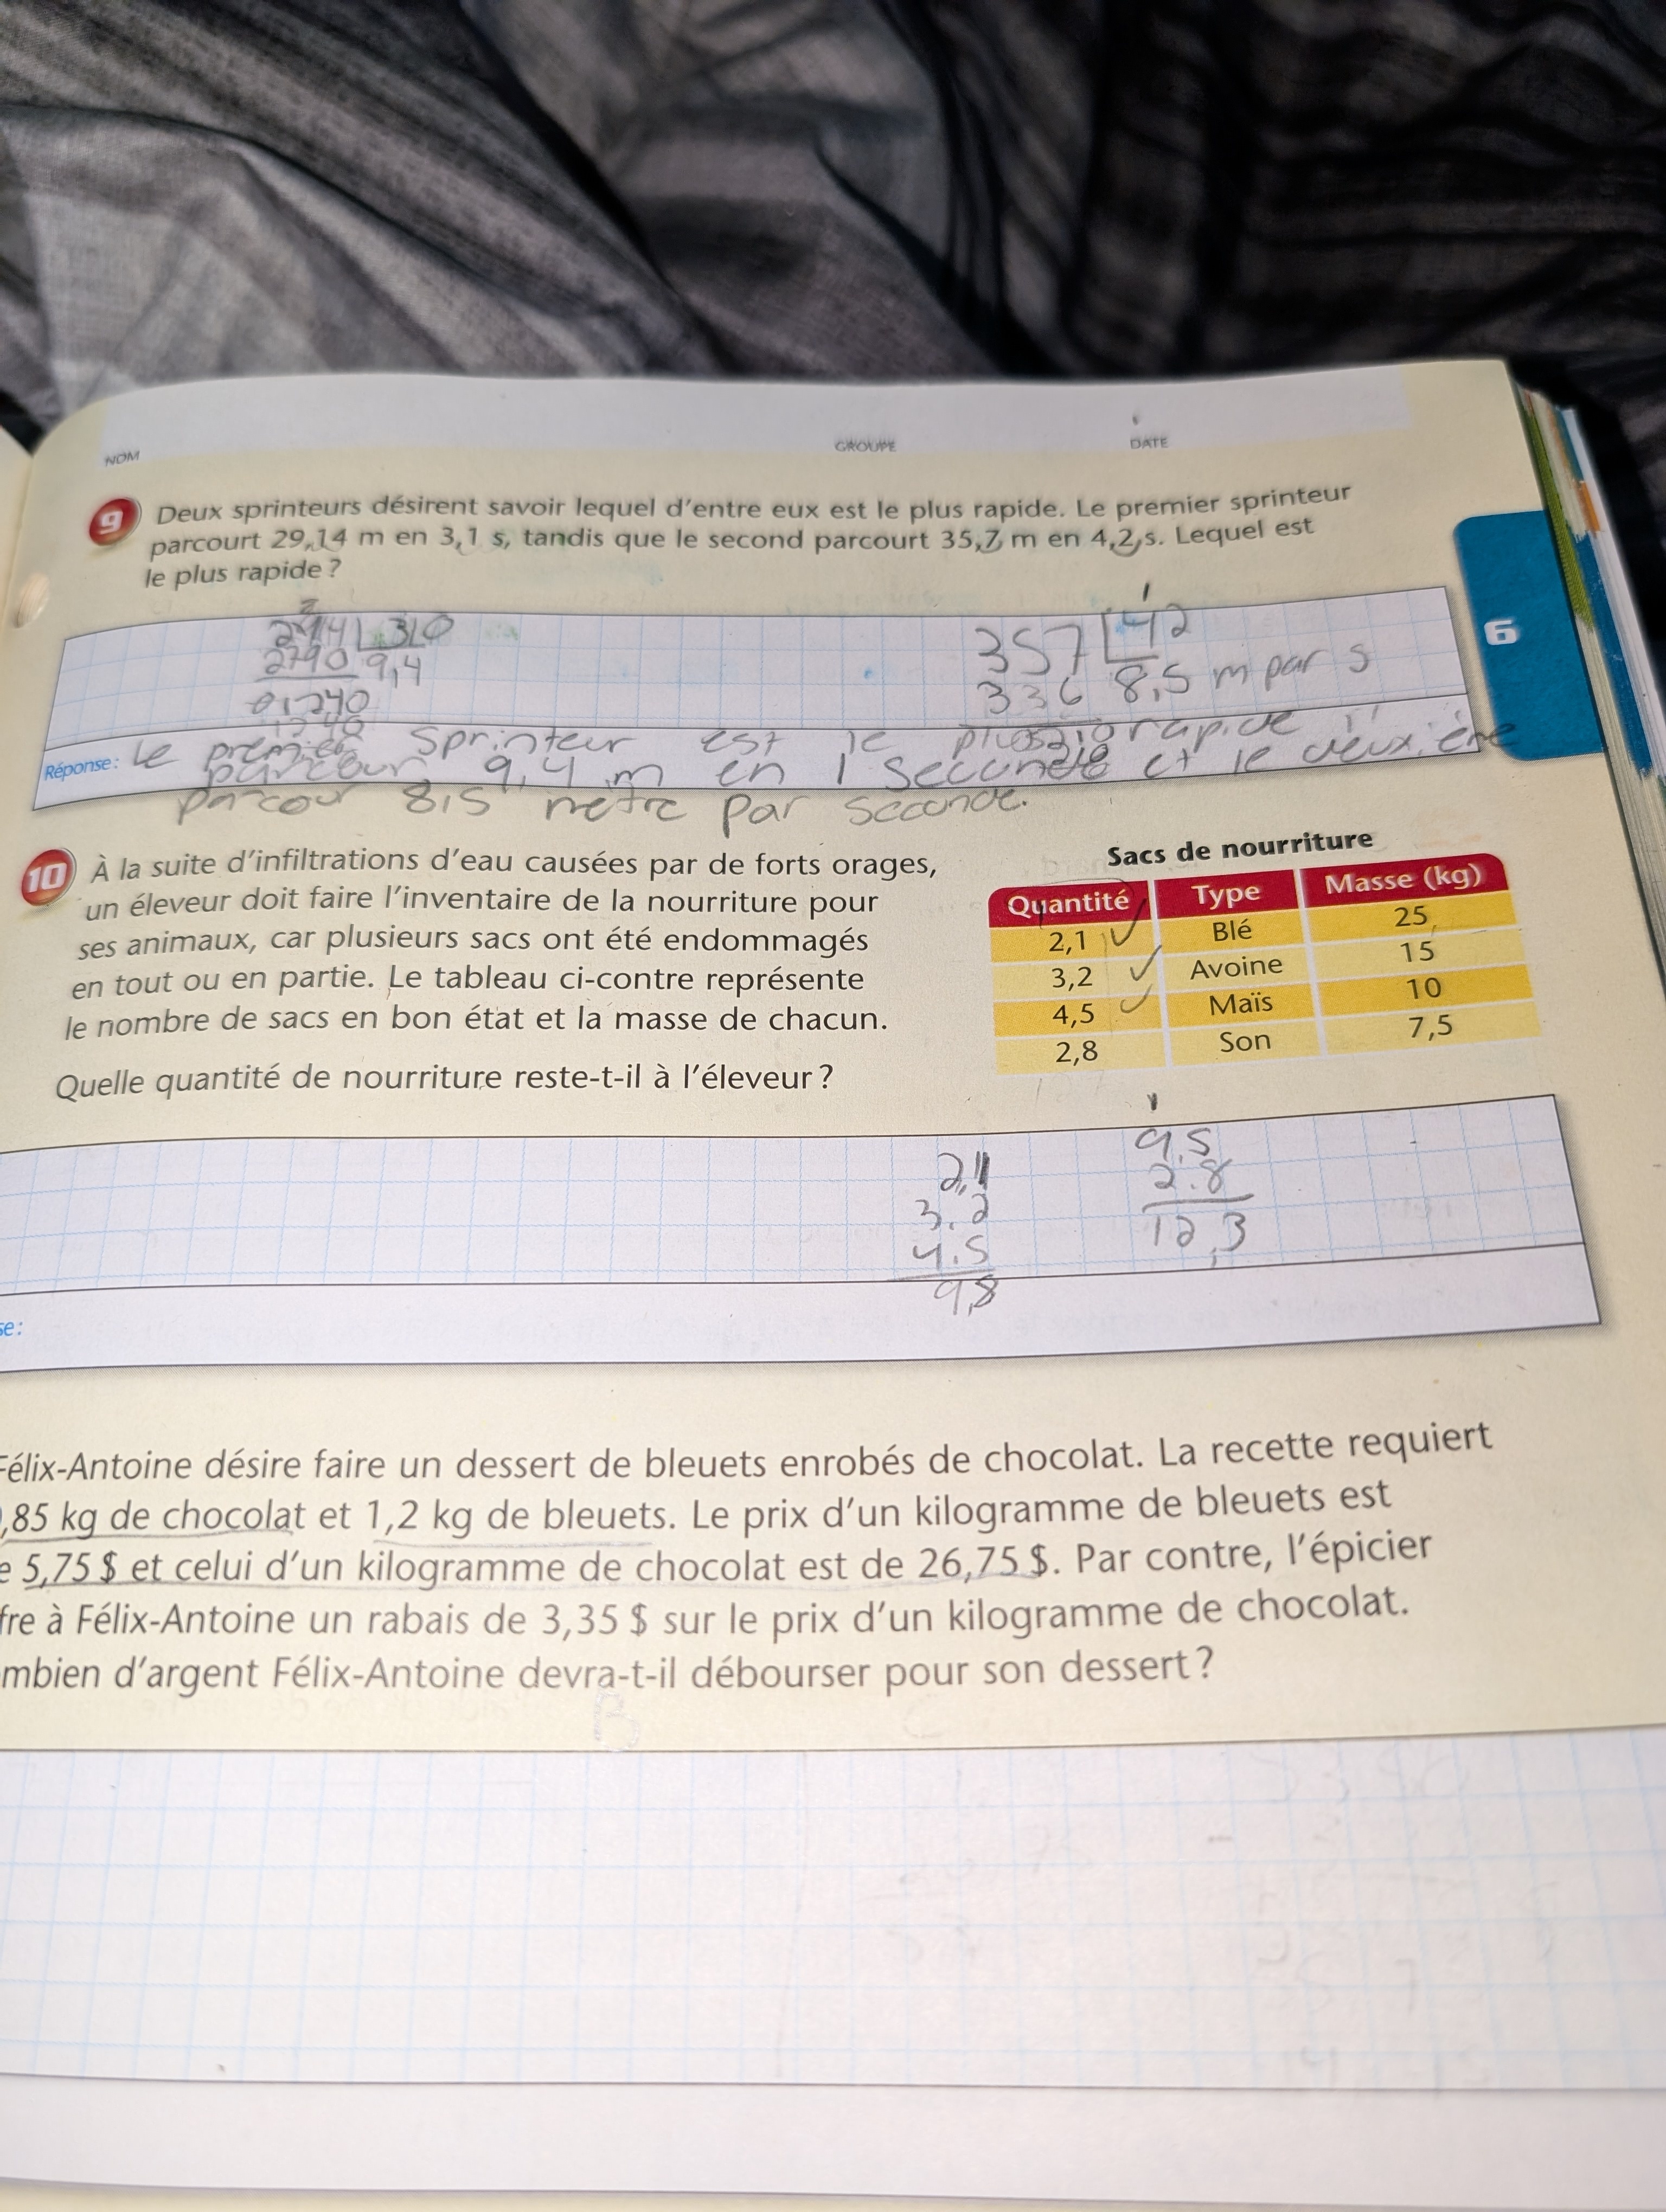 NOM GROUPE DATE
9 Deux sprinteurs désirent savoir lequel d'entre eux est le plus rapide. Le premier sprinteur
parcourt 29,14 m en 3,1 s, tandis que le second parcourt 35,7 m en 4,2 s. Lequel est
le plus rapide ?
6
2914 310
2790 9,4
01240
1240
357 42
336 8,5 m par s
210
210
Réponse : Le premier sprinteur est le plus rapide il
parcour 9,4 m en 1 seconde et le deuxième
parcour 8,5 mètre par seconde.
10 À la suite d'infiltrations d'eau causées par de forts orages,
un éleveur doit faire l'inventaire de la nourriture pour
ses animaux, car plusieurs sacs ont été endommagés
en tout ou en partie. Le tableau ci-contre représente
le nombre de sacs en bon état et la masse de chacun.
Quelle quantité de nourriture reste-t-il à l'éleveur ?
Sacs de nourriture
Quantité Type Masse (kg)
2,1 Blé 25
3,2 Avoine 15
4,5 Maïs 10
2,8 Son 7,5
2,1
3.2
4.5
9,8
1
9.5
2.8
12,3
se :
Félix-Antoine désire faire un dessert de bleuets enrobés de chocolat. La recette requiert
,85 kg de chocolat et 1,2 kg de bleuets. Le prix d'un kilogramme de bleuets est
e 5,75 $ et celui d'un kilogramme de chocolat est de 26,75 $. Par contre, l'épicier
fre à Félix-Antoine un rabais de 3,35 $ sur le prix d'un kilogramme de chocolat.
mbien d'argent Félix-Antoine devra-t-il débourser pour son dessert ?